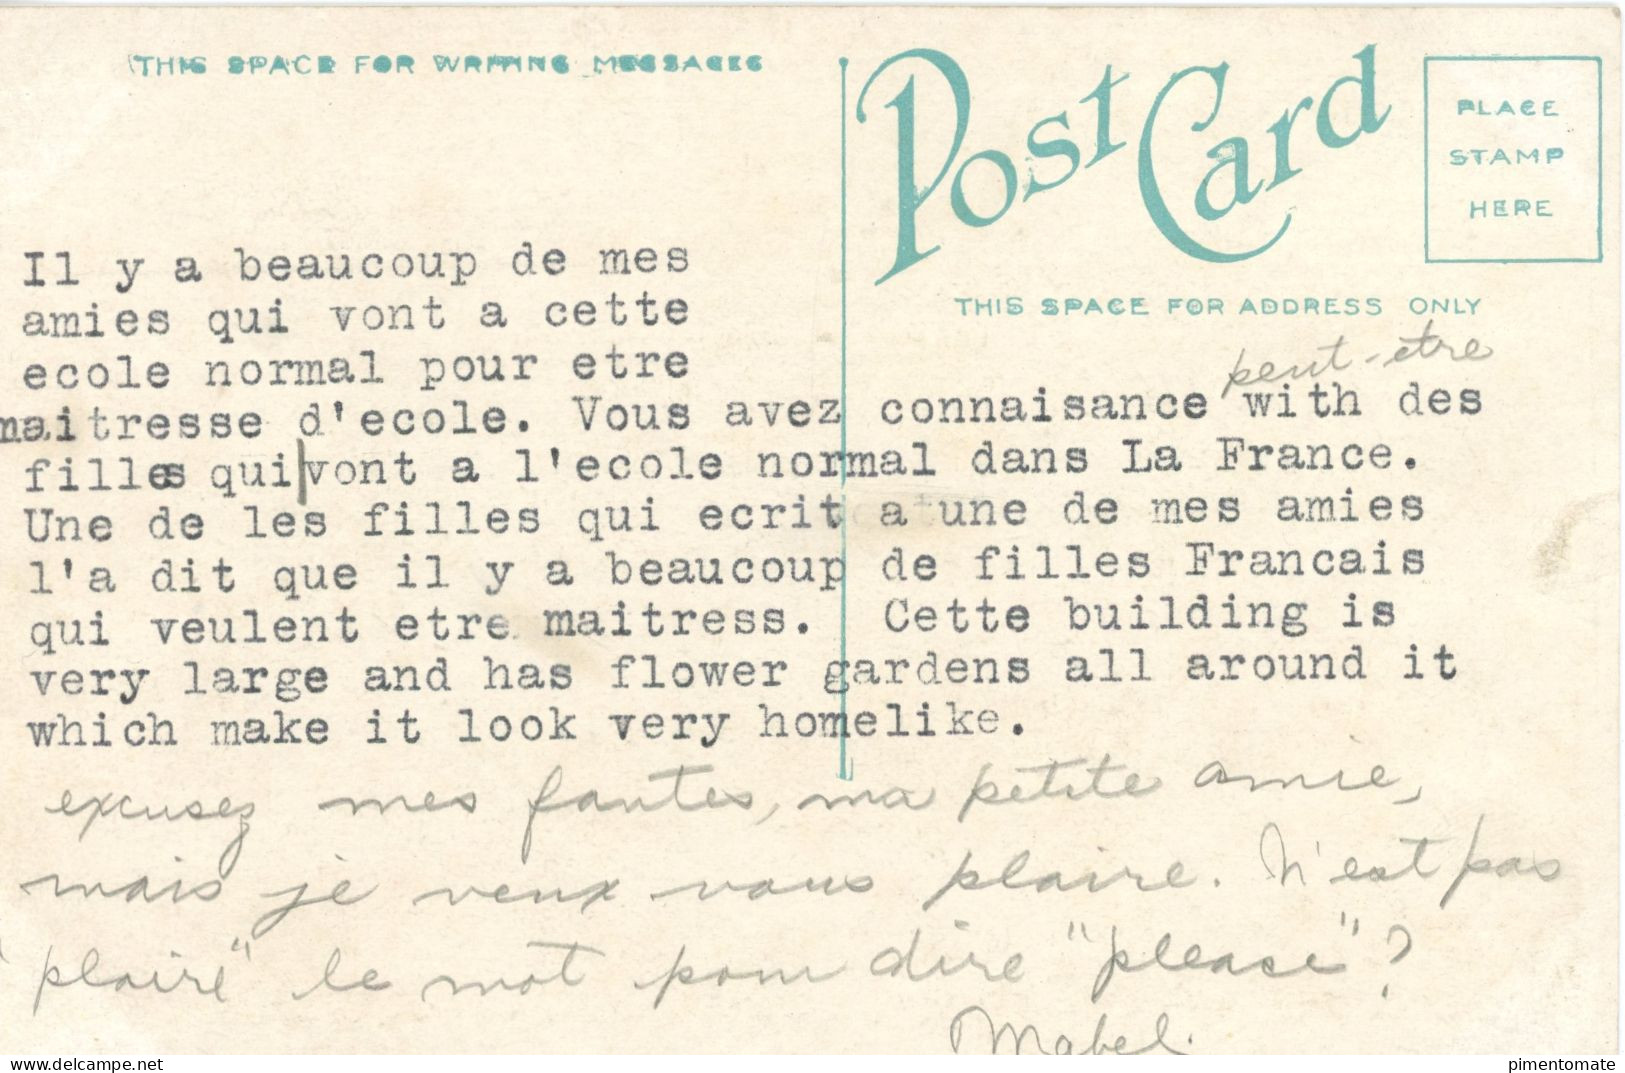 THIS SPACE FOR WRITING MESSAGES
Post Card
PLACE
STAMP
HERE
THIS SPACE FOR ADDRESS ONLY
Il y a beaucoup de mes
amies qui vont a cette
ecole normal pour etre
peut-etre
maitresse d'ecole. Vous avez connaisance with des
filles qui vont a l'ecole normal dans La France.
Une de les filles qui ecrit a une de mes amies
l'a dit que il y a beaucoup de filles Francais
qui veulent etre maitress. Cette building is
very large and has flower gardens all around it
which make it look very homelike.
excusez mes fautes, ma petite amie,
mais je veux vous plaire. N'est pas
"plaire" le mot pour dire "please"?
Mabel.
delcampe.net
pimentomate